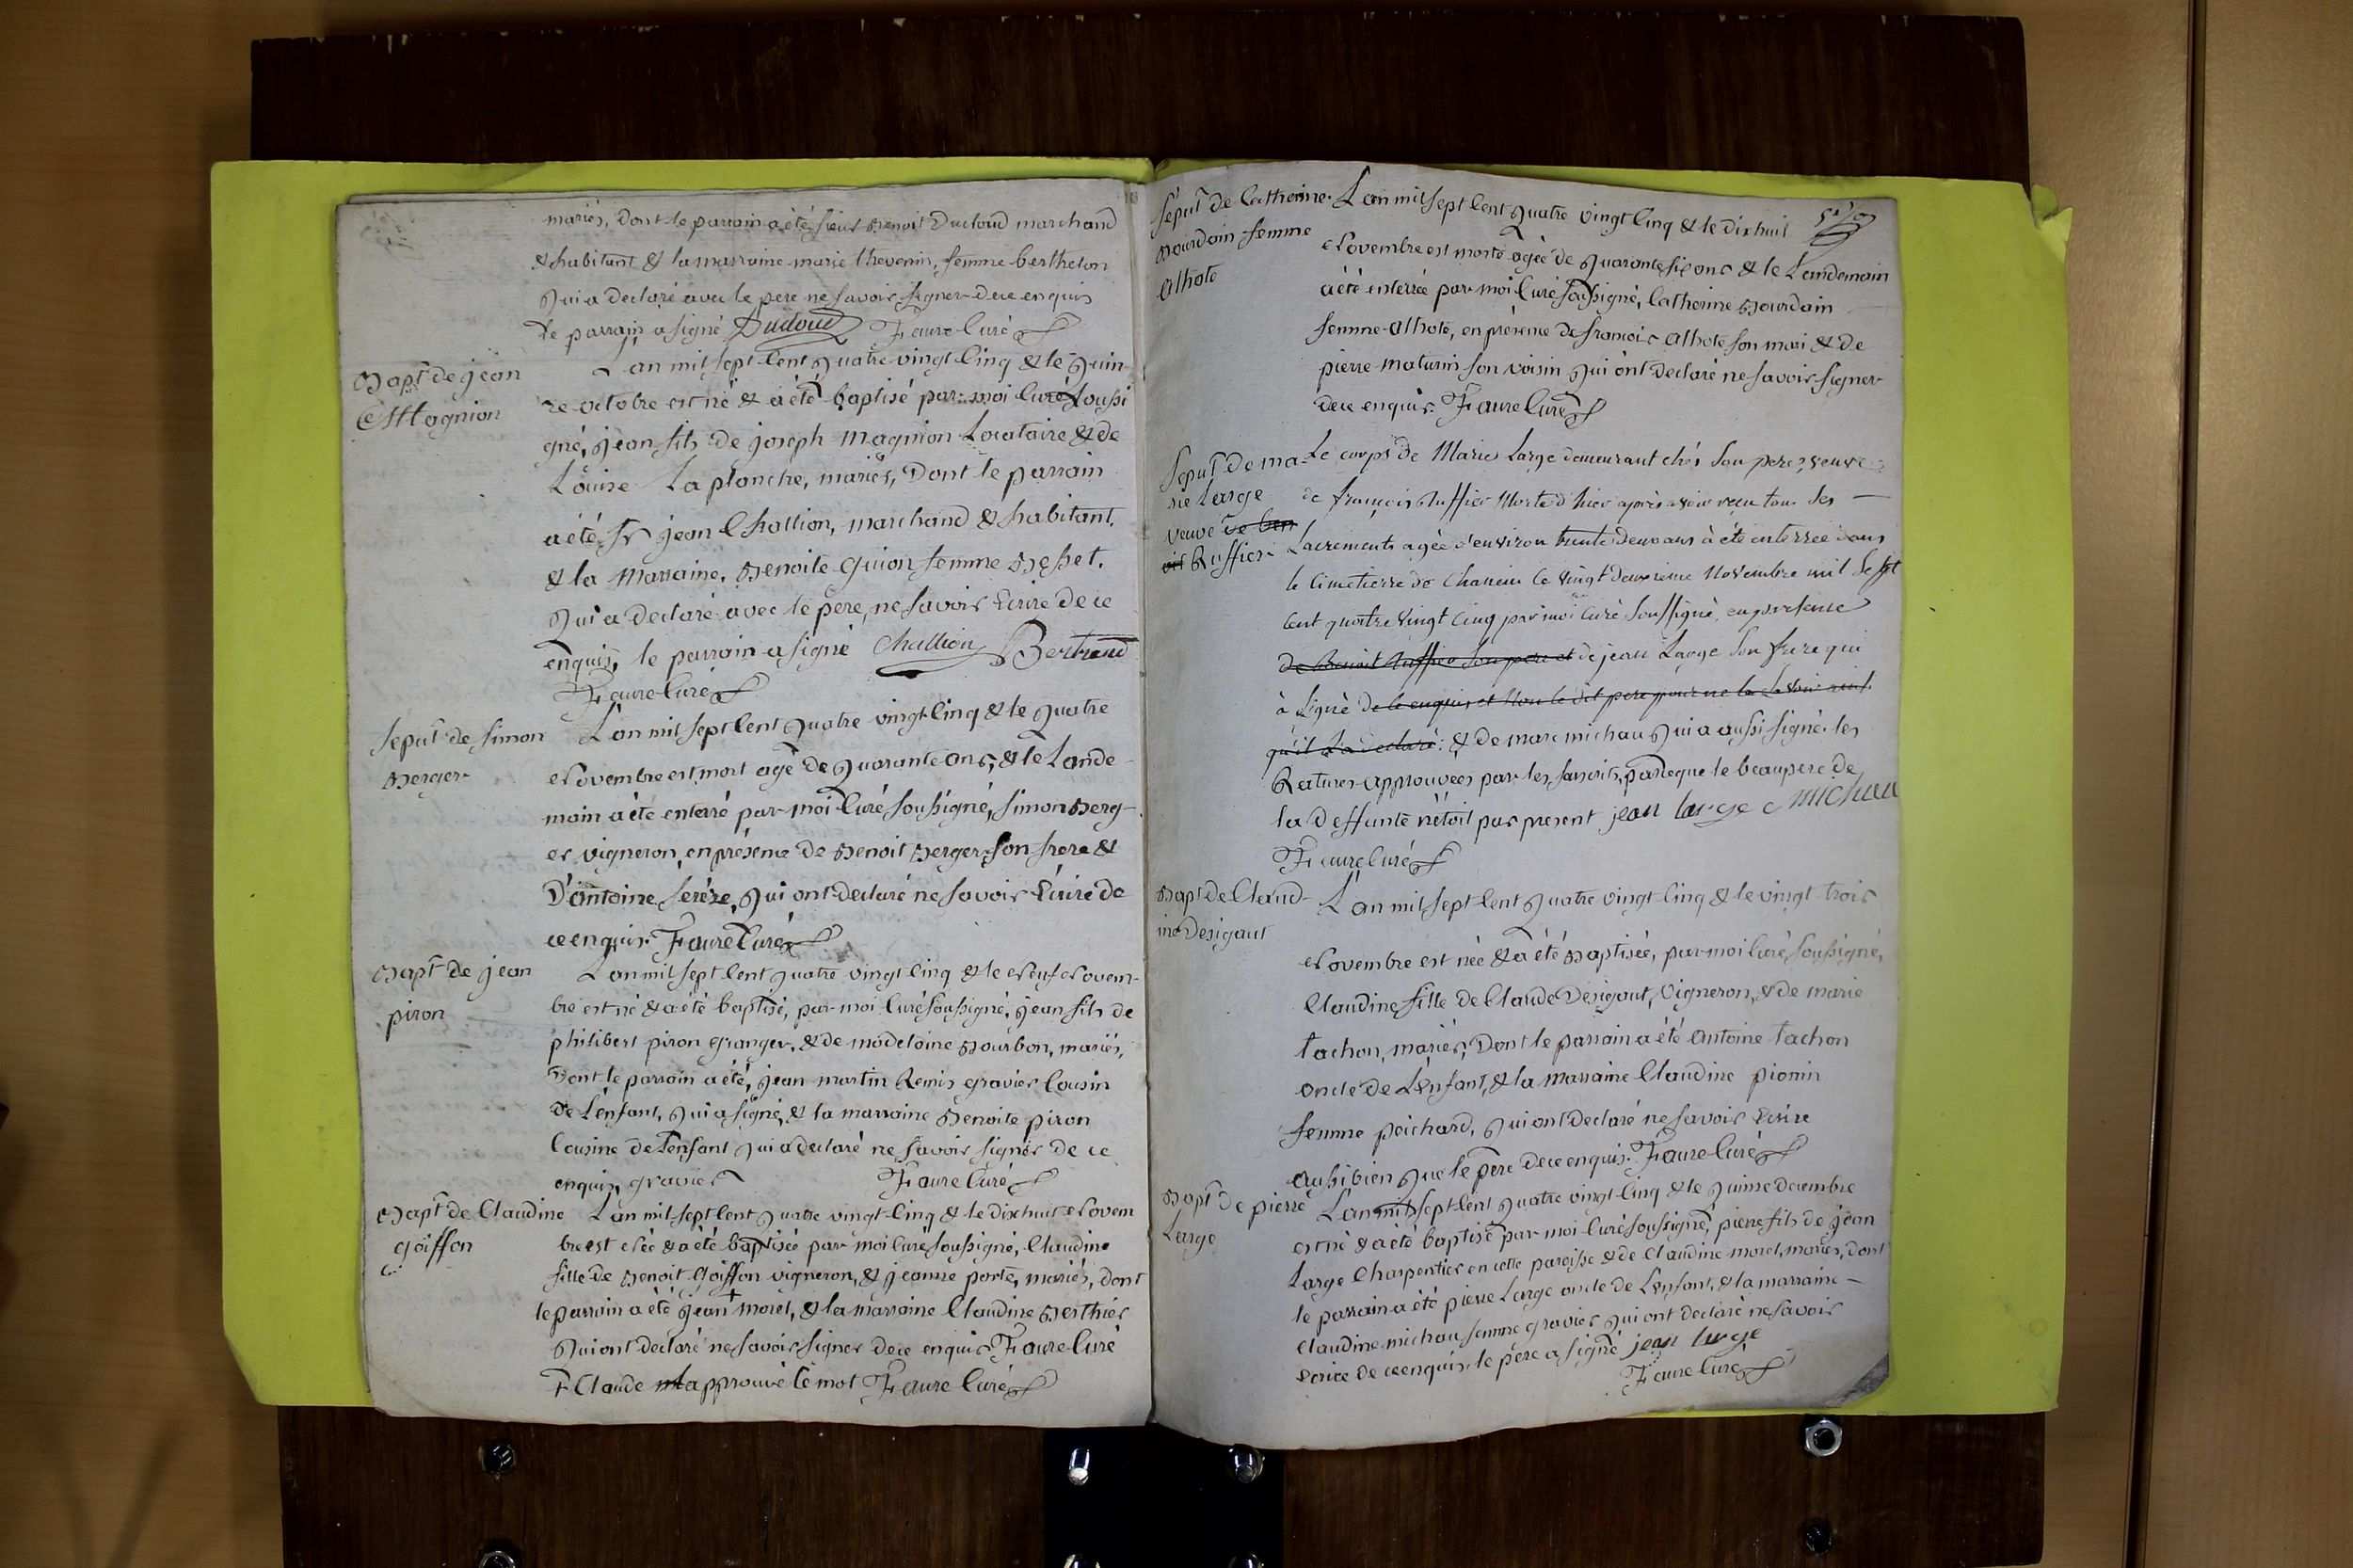 mariés, Dont le parrain a été sieur Benoit Ducloud marchand
& habitant & la marraine marie thevenin, femme berthelon
Qui a Declaré avec le pere ne savoir signer de ce enquis
le parrain a signé Ducloud Faure Curé
Bapt de jean
Magnion
L'an mil sept Cent Quatre vingt Cinq & le Quin
ze octobre est né & a été baptisé par moi Curé Soussi
gné, jean fils de joseph Magnion Locataire & de
Louise La planche, mariés, Dont le parrain
a été Sr jean Chollion, marchand & habitant,
& la Marraine, Benoite Guion femme Besset.
Qui a Declaré avec le pere, ne savoir Ecrire de ce
enquis, le parrain a signé Challion Bertrand
Faure Curé
Sepul de Simon
Berger
L'an mil sept Cent Quatre vingt Cinq & le Quatre
Novembre est mort agé de Quarante ans, & le Lande
main a été enterré par moi Curé Soussigné, Simon Berg-
er vigneron, en présence de Benoit Berger son frere &
D'antoine Serére, Qui ont declaré ne savoir Ecrire de
ce enquis. Faure Curé
Bapt de jean
piron
L'an mil sept Cent Quatre vingt Cinq & le Neuf Novem-
bre est né & a été baptisé, par moi Curé soussigné, jean fils de
philibert piron granger, & de modeloine Bourbon, mariés,
Dont le parrain a été, jean martin Remis gravier Cousin
de L'enfant, Qui a signé, & la marraine Benoite piron
Cousine de L'enfant Qui a declaré ne savoir signer de ce
enquis, gravier Faure Curé
Bapt de Claudine
goiffon
L'an mil sept Cent Quatre vingt Cinq & le Dix huit Novem
bre est Née & a été baptisée par moi Curé soussigné, Claudine
fille de Benoit Goiffon vigneron, & jeanne porte, mariés, dont
le parrain a été jean + morel, & la marraine Claudine Berthier
Qui ont declaré ne savoir signer de ce enquis Faure Curé
+ Claude approuvé le mot Faure Curé
Sepul de Catherine
Bourdain femme
alhote
L'an mil sept Cent Quatre vingt Cinq & le dix huit
Novembre est morte agée de Quarante six ans & le Landemain
a été enterrée par moi Curé soussigné, Catherine Bourdain
femme alhote, en présence de francois alhote son mari & de
pierre maturin son voisin Qui ònt declaré ne savoir signer
de ce enquis. Faure Curé
Sepul de ma-
rie Large
veuve de ben
oit Ruffier
Le corps de Marie Large demeurant chés Son pere, veuve
de françois Ruffier Morte d'hier après avoir reçu tous les
Sacrements agée d'environ trente deux ans à été enterrée dans
le Cimetierre de Chaneins le vingt deuxieme Novembre mil Sept
Cent quatre vingt Cinq par moi Curé Soussigné, en presence
de Benoit Ruffier son pere et de jean Large Son frere qui
à Signé de ce enquis et Non le dit pere pour ne la savoir
qu'il L'a declaré: & de marc michau Qui a aussi signé. les
Ratures approuvées par les susdits, parceque le beaupere de
la Deffunte n'étoit pas present jean large Michau
Faure Curé
Bapt de Claud-
ine Desigaut
L'an mil sept Cent Quatre vingt Cinq & le vingt trois
Novembre est née & a été Baptisée, par moi Curé soussigné,
Claudine fille de Claude Desigaut, Vigneron, & de marie
tachon, mariés, Dont le parrain a été antoine tachon
oncle de L'enfant, & la Marraine Claudine pionin
femme poichard, Qui ont declaré ne savoir Ecrire
aussi bien Que le pere de ce enquis. Faure Curé
Bapt de pierre
Large
L'an mil sept Cent Quatre vingt Cinq & le Quinze decembre
est né & a été baptisé par moi Curé soussigné, pierre fils de jean
Large Charpentier en cette paroisse & de Claudine morel, mariés, dont
le parrain a été pierre Large oncle de L'enfant, & la marraine
Claudine michau femme gravier Qui ont declaré ne savoir
ecrire de ce enquis, le pere a signé jean large
Faure Curé